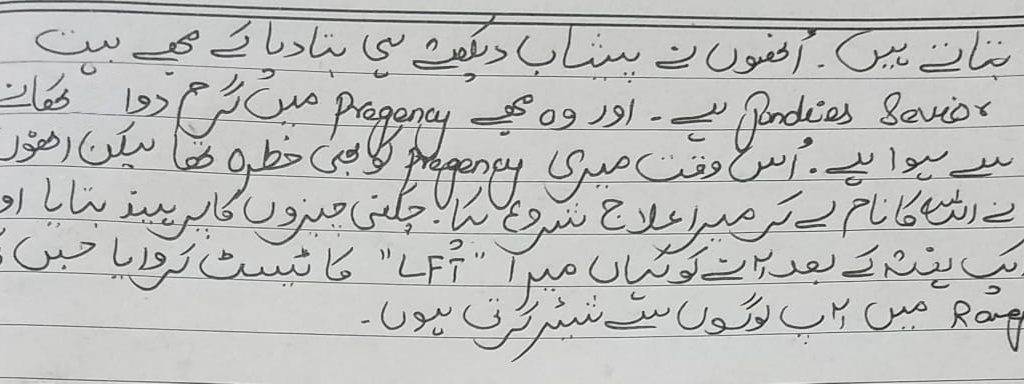 بتاتے ہیں۔ اُنھوں نے پیشاب دیکھتے ہی بتا دیا کے مجھے بہت
Jondies Sevior ہے۔ اور وہ مجھے Pregency میں گرم دوا کھانے
سے ہوا ہے۔ اُس وقت میری Pregency کو بھی خطرہ تھا لیکن انھوں
نے اللہ کا نام لے کر میرا علاج شروع کیا۔ چکنی چیزوں کا پرہیز بتایا او
یک ہفتہ کے بعد میرا "LFT" کا ٹیسٹ کروایا جس
میں آپ لوگوں سے شیئر کرتی ہوں۔